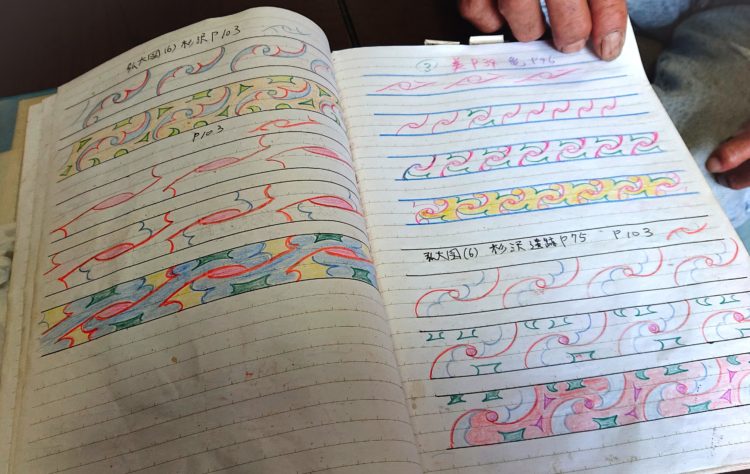 弘大図(6) 杉沢P103
P103
(3) P39
弘大図(6) 杉沢遺跡P75 P103